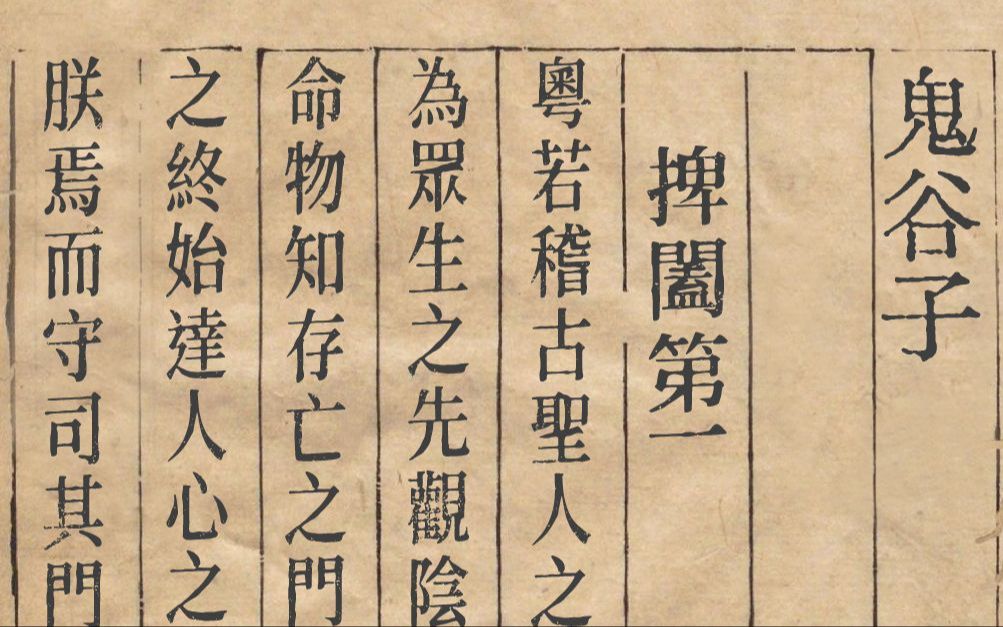 鬼谷子
捭闔第一
粵若稽古聖人之
為眾生之先觀陰
命物知存亡之門
之終始達人心之
朕焉而守司其門